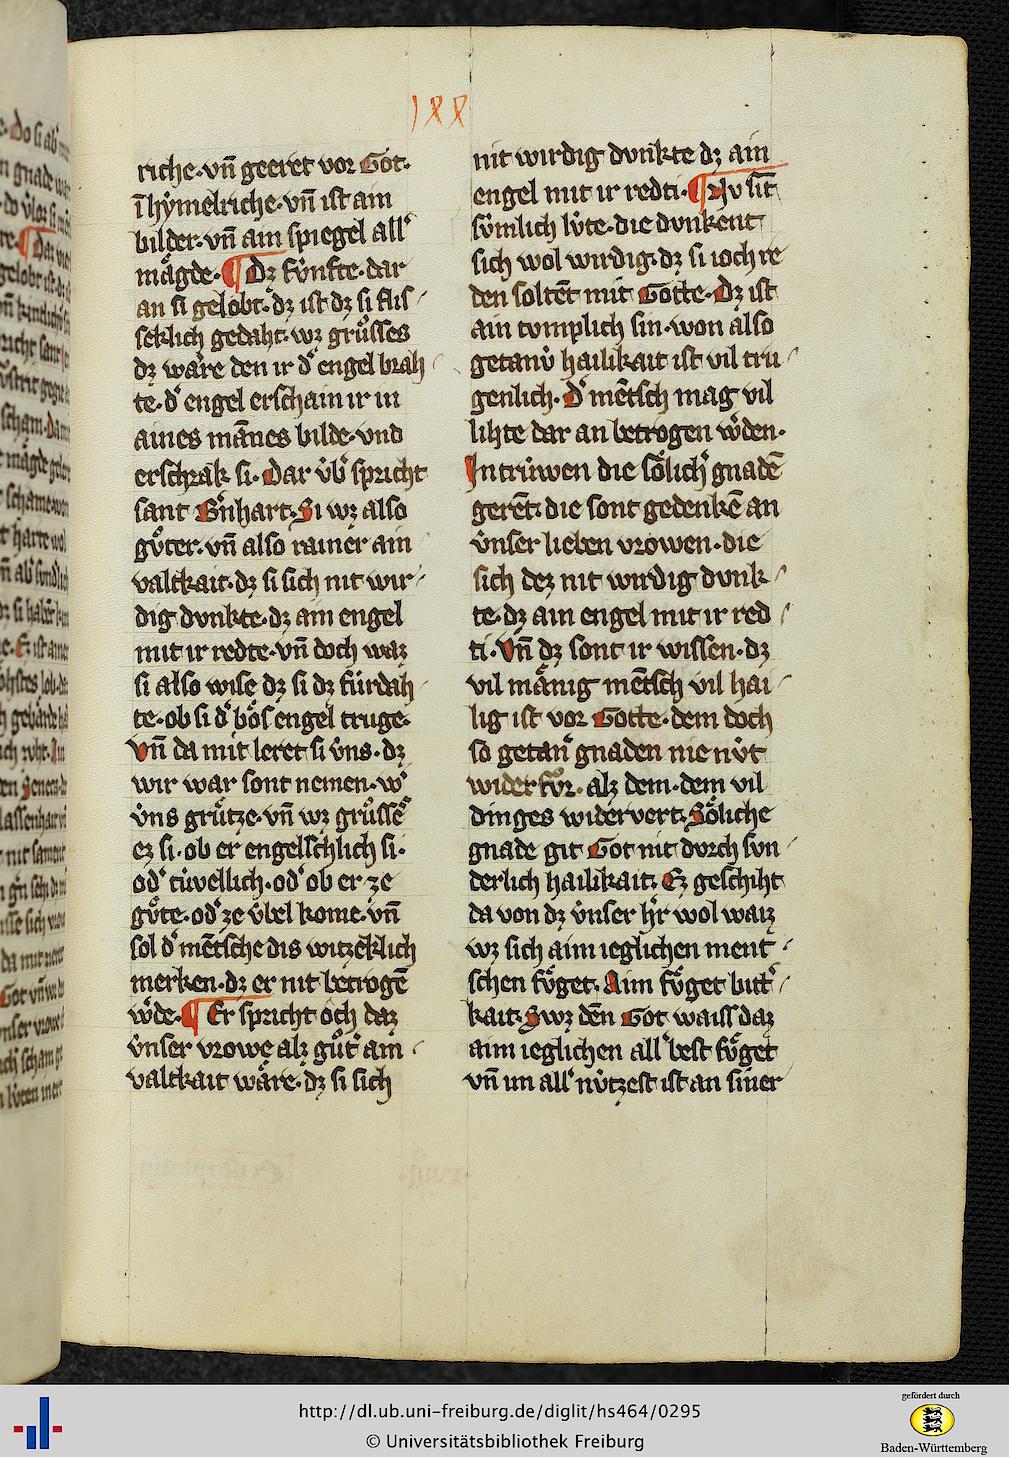 lxx
riche·vn̄ geeret vor Got·
ī hẏmelriche·vn̄ ist ain
bilder·vn̄ ain spiegel all'
mägde·¶Dz fv́nfte·dar
an si gelobt·dz ist dz si flis⸗
seklich gedaht·wz grůsses
dz wäre den ir d' engel brah⸗
te·d' engel erschain ir in
aines mānes bilde·vnd
erschrak si·Dar v́b' spricht
sant B'nhart·Si wz also
gůter·vn̄ also rainer ain⸗
valtkait·dz si sich nit wir⸗
dig dvnkte·dz ain engel
mit ir redte·vn̄ doch waz
si also wise dz si dz fúrdah⸗
te·ob si d' bös engel truge·
Vn̄ da mit leret si v́ns·dz
wir war sont nemen·w'
v́ns grůtze·vn̄ wz grůssē
ez si·ob er engelschlich si·
od' túvellich·od' ob er ze
gůte·od' ze v́bel kome·vn̄
sol d' mētsche dis witzeklich
merken·dz er nit betrogē
w'de·¶Er spricht och daz
v́nser vrowe alz gůt' ain⸗
valtkait wäre·dz si sich
nit wirdig dvnkte dz ain
engel mit ir redti·¶Nv sīt
sv́mlich lv́te·die dvnkent
sich wol wirdig·dz si ioch re
den soltēt mit Gotte·Dz ist
ain tvmplich sin·won also
getanv́ hailikait ist vil tru⸗
genlich·D' mētsch mag vil
lihte dar an betrogen w'den·
In trúwen die sölich' gnadē
gerēt·die sont gedenkē an
v́nser lieben vrowen·die
sich dez nit wirdig dvnk⸗
te·dz ain engel mit ir red⸗
ti·Vn̄ dz sont ir wissen·dz
vil mänig mētsch vil hai⸗
lig ist vor Gotte·dem doch
so getan' gnaden nie nv́t
widerfůr·alz dem·dem vil
dinges widervert·Söliche
gnade git Got nit dvrch svn⸗
derlich hailikait·Ez geschiht
da von dz v́nser h'r wol waiz
wz sich aim ieglichen ment⸗
schen fůget·Aim fůget bitt'⸗
kait·Swz dēn Got waiss daz
aim ieglichen all' best fůget
vn̄ im all' nv́tzest ist an siner
http://dl.ub.uni-freiburg.de/diglit/hs464/0295
© Universitätsbibliothek Freiburg
gefördert durch
Baden-Württemberg